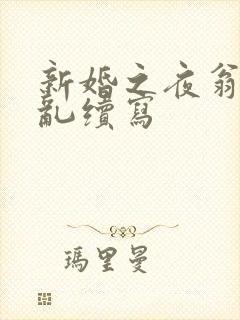 新婚之夜翁
亂續寫
瑪里曼